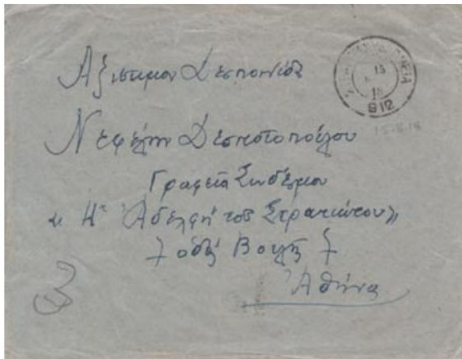 Ἀξιότιμον Δεσποινίδα
Νεφέλην Δεσποτοπούλου
Γραφεῖα Συνδέσμου
« Ἡ Ἀδελφή τοῦ Στρατιώτου »
7 ὁδός Βουλῆς 7
Ἀθήνας
15
18
912